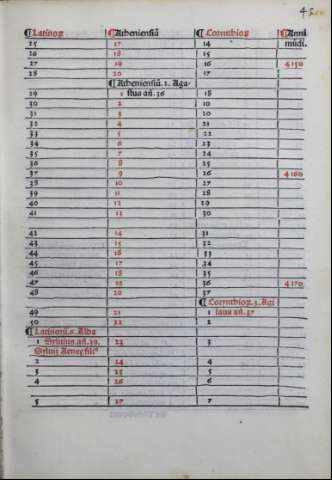 ¶Latinoꝝ ¶Atheniensiū ¶Corynthioꝝ ¶Anni mūdi.
25 17 14
26 18 15
27 19 16 4150
28 20 17
¶Atheniensiū. 2. Aga-
29 1 stus añ. 36 18
30 2 19
31 3 20
32 4 21
33 5 22
34 6 23
35 7 24
36 8 25
37 9 26 4160
38 10 27
39 11 28
40 12 29
41 13 30
42 14 31
43 15 32
44 16 33
45 17 34
46 18 35
47 19 36 4170
48 20 37
¶Corynthioꝝ. 3. Agi
49 21 1 laus añ. 37
50 22 2
¶Latinorū. 5. Alba
1 Syluius. añ. 39. 23 3
Syluij Aeneę filiꝰ
2 24 4
3 25 5
4 26 6
5 27 7